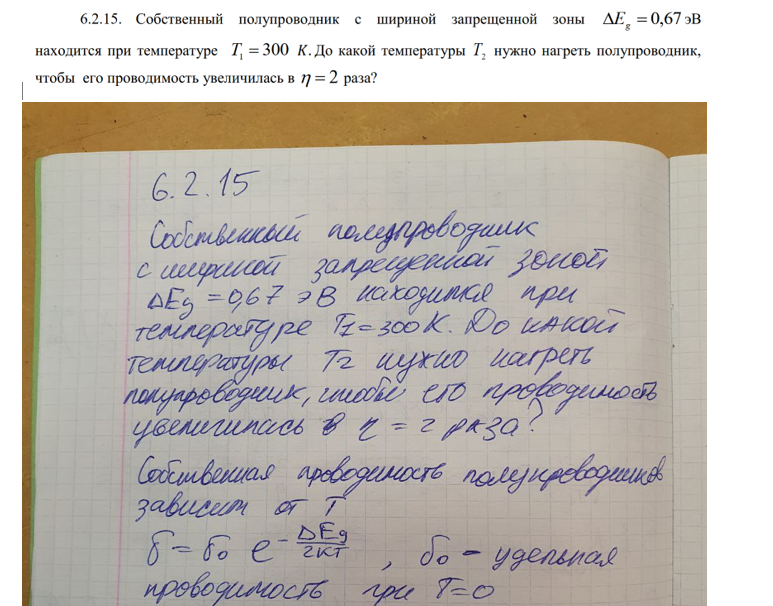 6.2.15. Собственный полупроводник с шириной запрещенной зоны ΔE_g = 0,67 эВ
находится при температуре T_1 = 300 К. До какой температуры T_2 нужно нагреть полупроводник,
чтобы его проводимость увеличилась в η = 2 раза?
6.2.15
Собственный полупроводник
с шириной запрещенной зоной
ΔEg = 0,67 эВ находится при
температуре T1 = 300 К. До какой
температуры T2 нужно нагреть
полупроводник, чтобы его проводимость
увеличилась в η = 2 раза?
Собственная проводимость полупроводников
зависит от T
σ = σ0 e^(-ΔEg/2kT), σ0 - удельная
проводимость при T=0